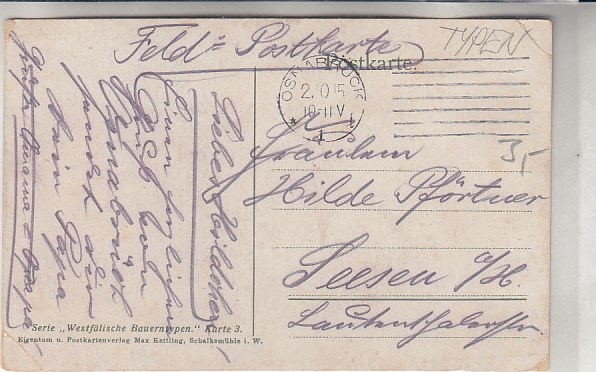 Feld=Postkarte
TYPEN
Postkarte.
OSNABRÜCK
2.10.15
10-11V
3,-
Fräulein
Hilde Pförtner
Seesen a/H.
Lautenthalerstr.
Liebes Hildchen,
Einen herzlichen
Gruß von
Osnabrück
sendet dir
Dein Papa
Serie „Westfälische Bauerntypen." Karte 3.
Eigentum u. Postkartenverlag Max Kettling, Schalksmühle i. W.